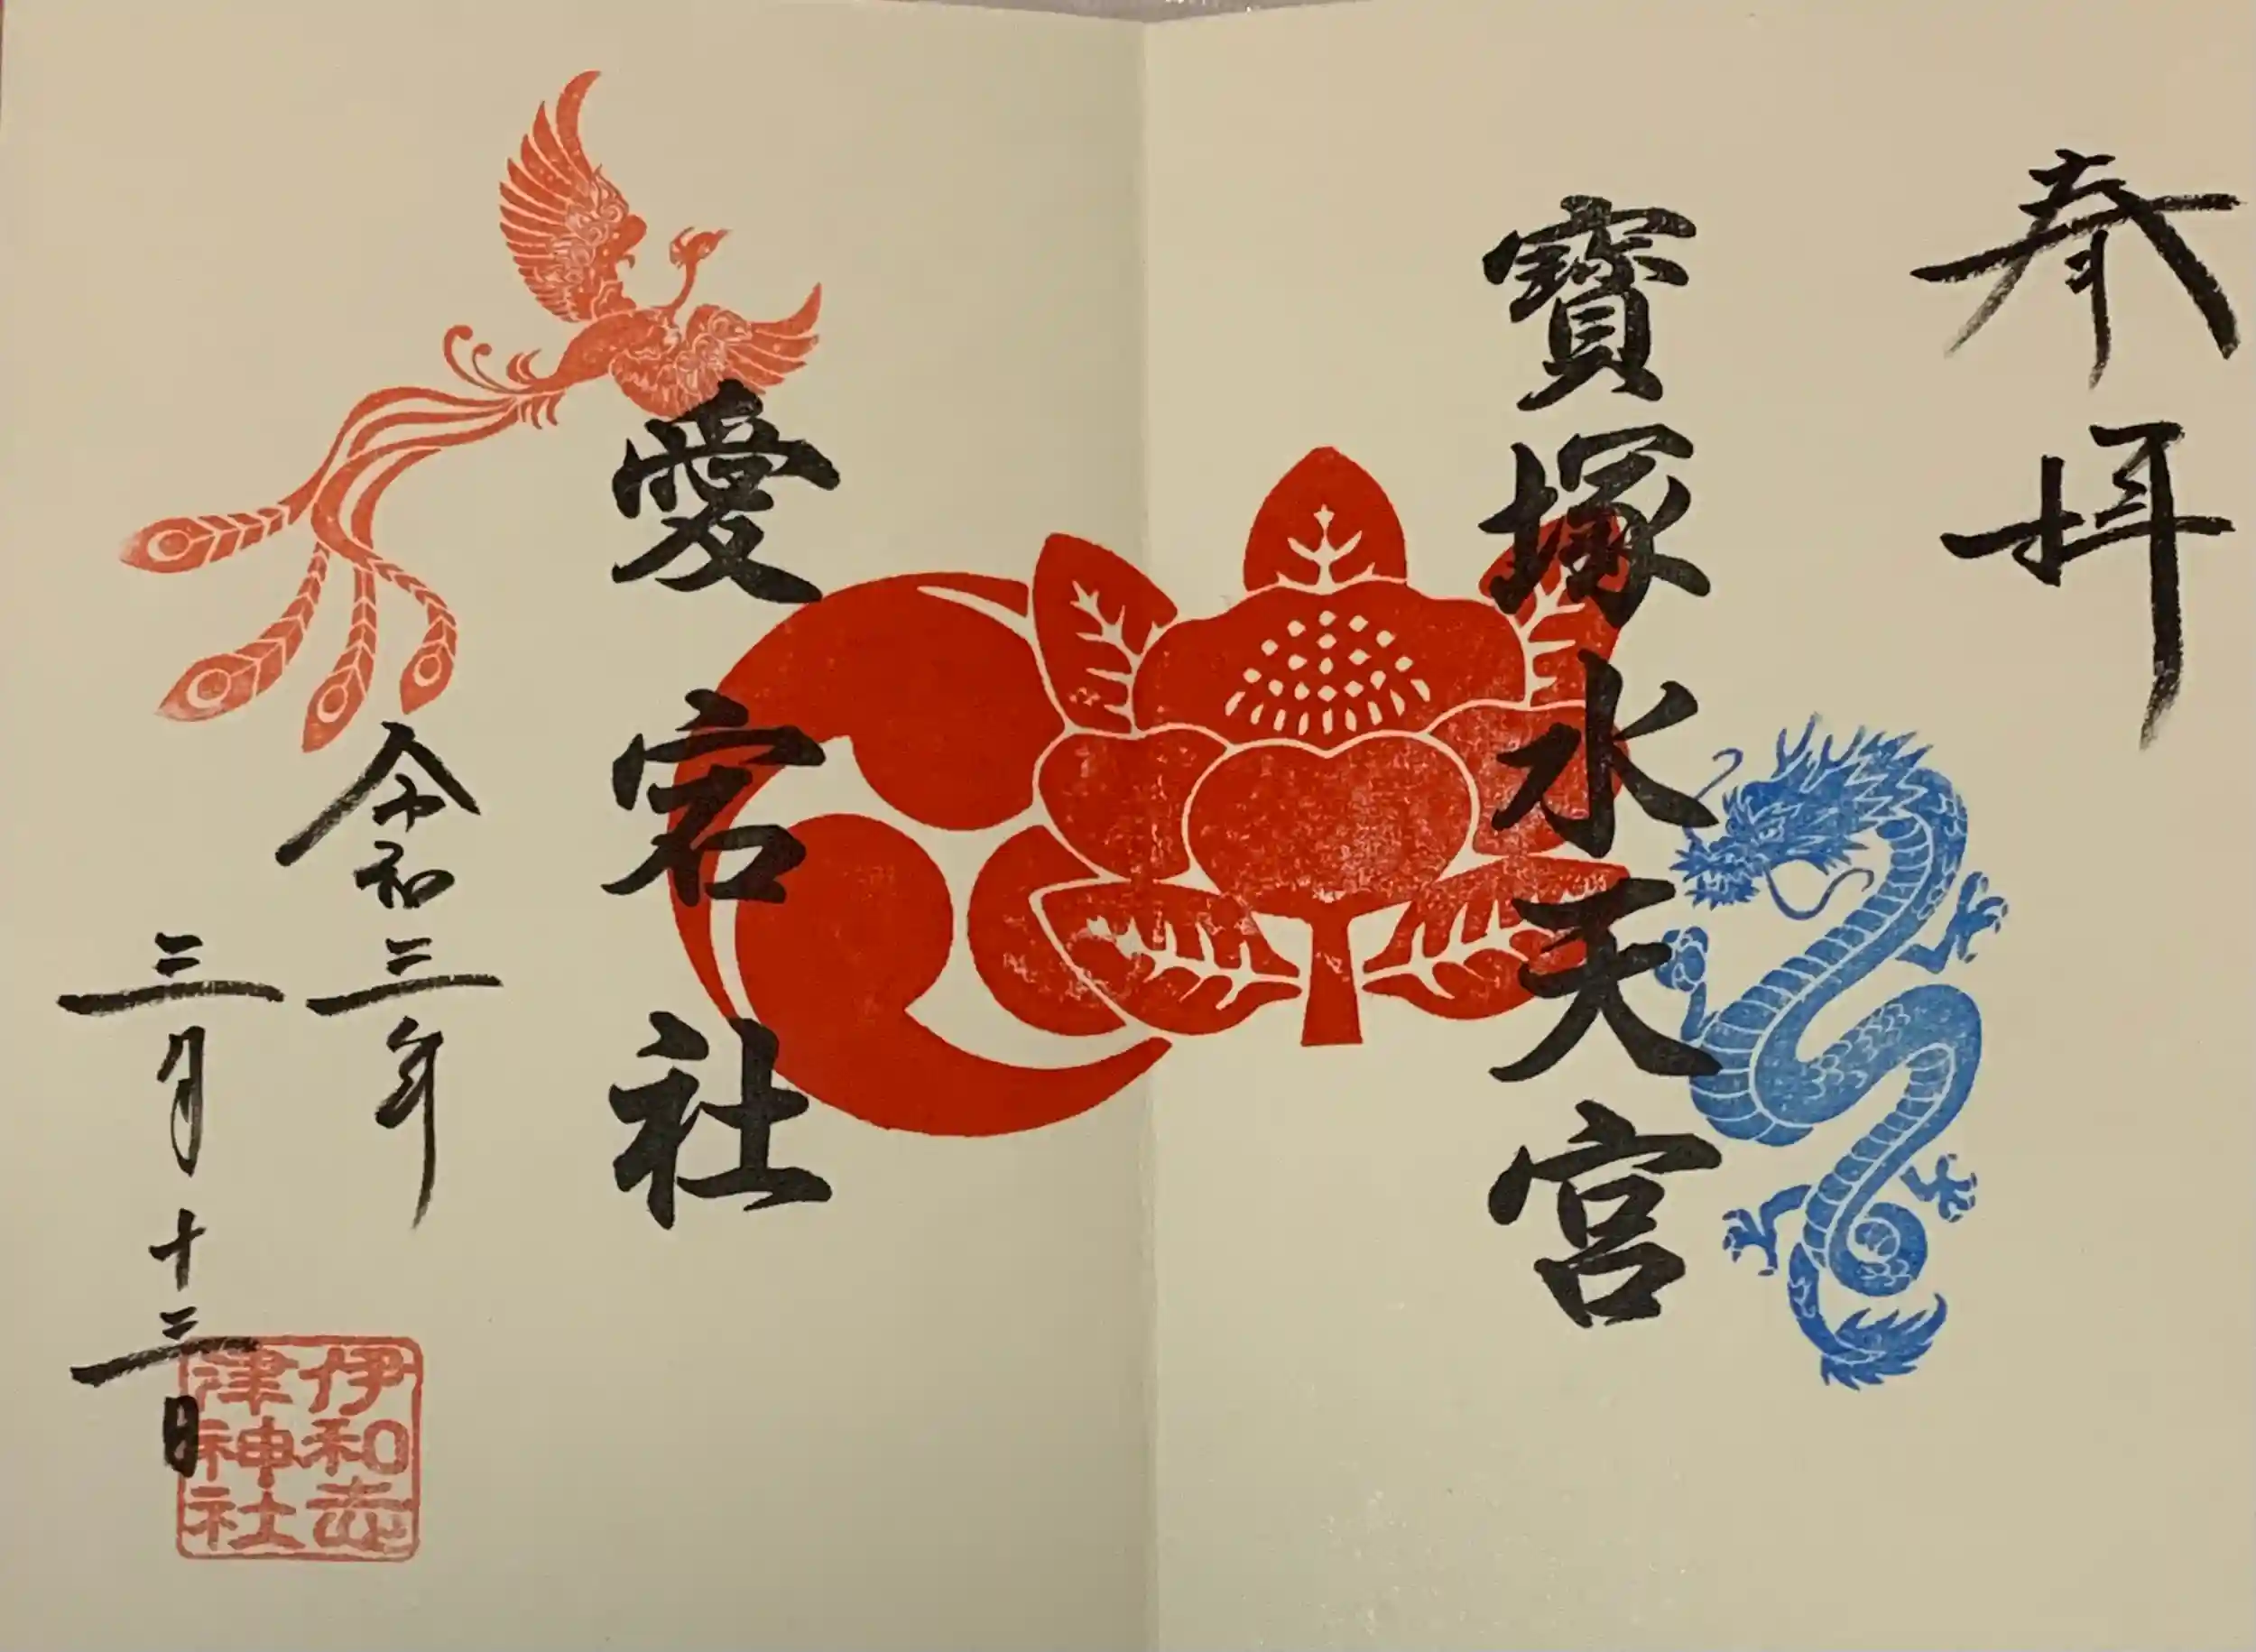 奉拝
寶塚水天宮
愛宕社
令和三年
三月十三日
伊和志
津神社